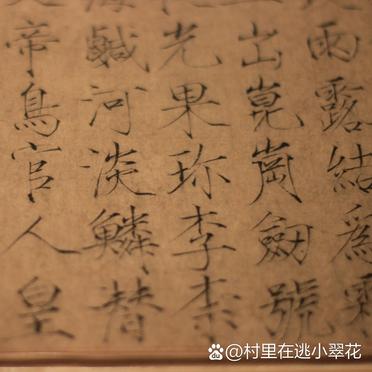 雨露結爲霜
出崑崗劒號
光果珍李柰
海鹹河淡鱗潜
帝鳥官人皇
@村里在逃小翠花